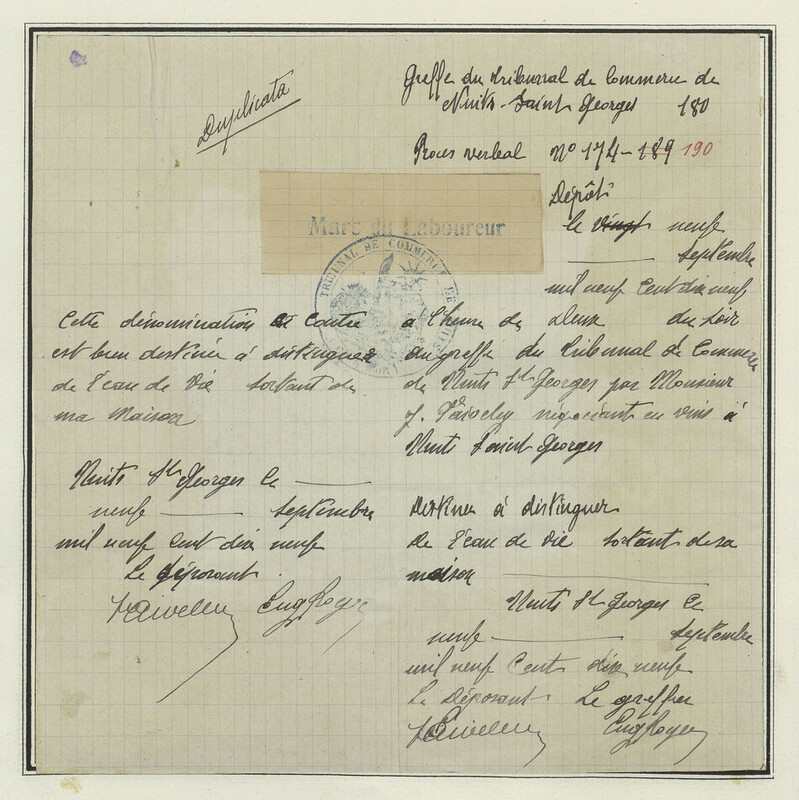 Duplicata
Greffe du tribunal de Commerce de
Nuits-Saint Georges 180
Proces verbal No 174-189 190
Marc du Laboureur
TRIBUNAL DE COMMERCE DE
Dépôt
le vingt neuf
septembre
mil neuf Cent dix neuf
Cette dénomination ci contre
est bien destinée à distinguer
de l'eau de vie sortant de
ma Maison
Nuits St Georges le
neuf septembre
mil neuf Cent dix neuf
Le déposant
à l'heure de Deux du soir
au greffe du tribunal de Commerce
de Nuits St Georges par Monsieur
J. Faiveley négociant en vins à
Nuits Saint Georges
Destinée à distinguer
de l'eau de vie sortant de sa
maison
Nuits St Georges le
neuf septembre
mil neuf Cent dix neuf
Le Déposant Le greffier